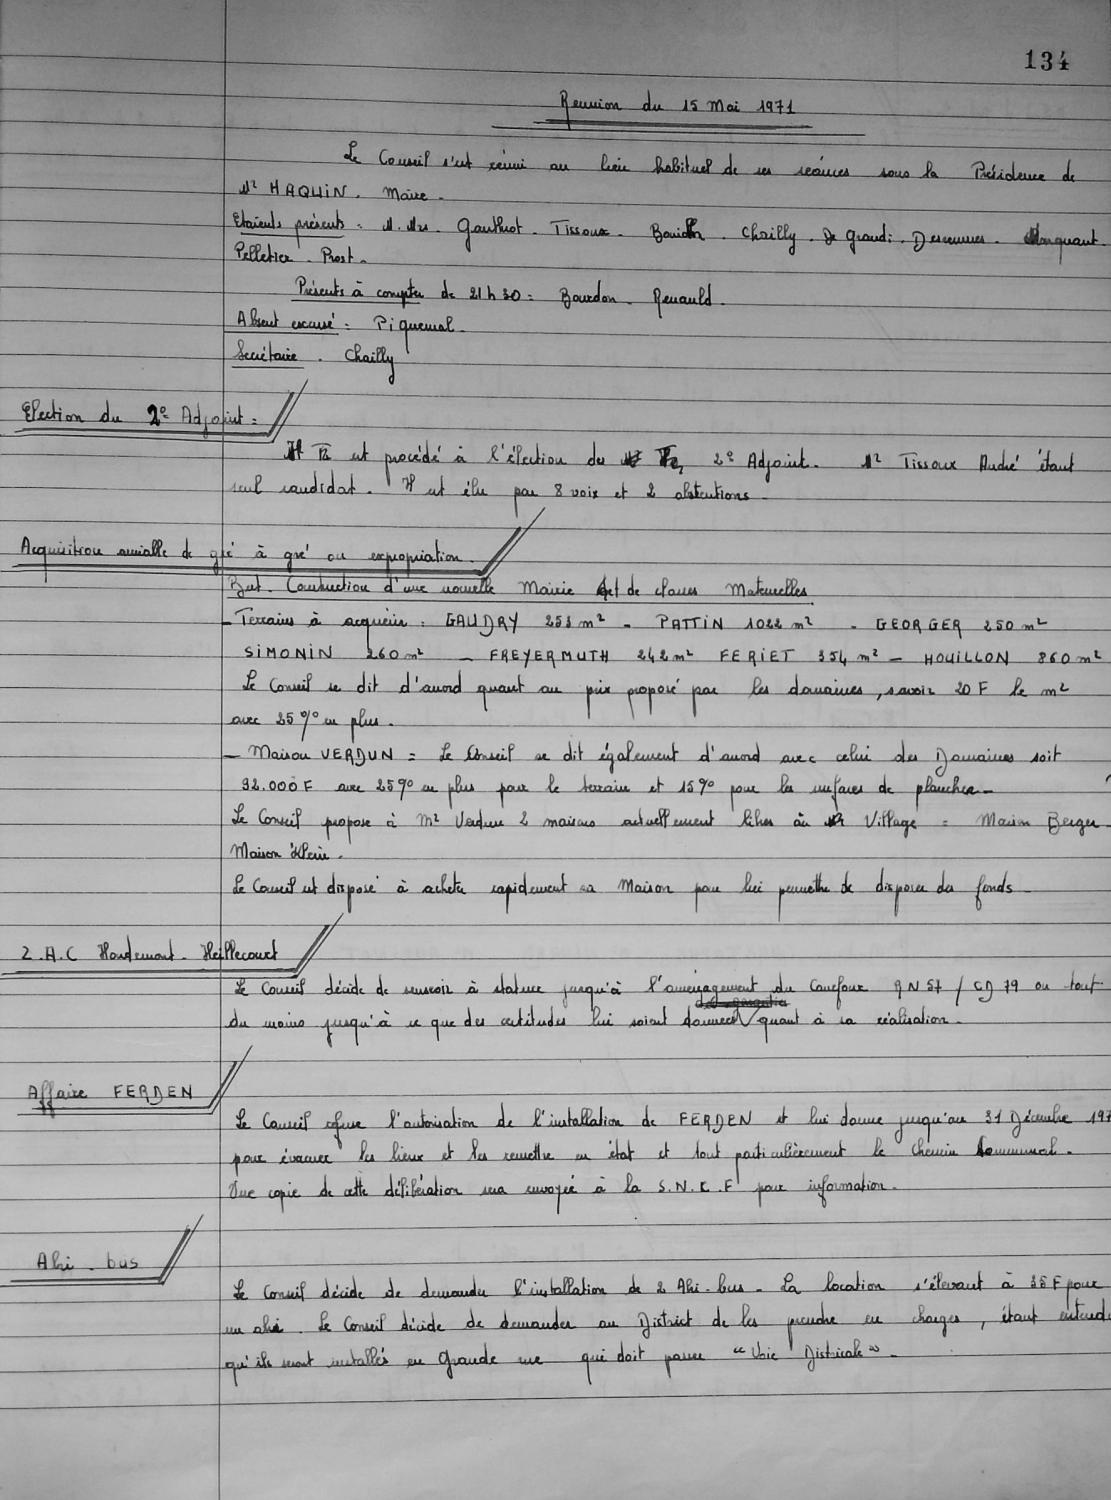 134
Reunion du 15 Mai 1971
Le Conseil s'est réuni au lieu habituel de ses séances sous la Présidence de
Mr HAQUIN. Maire.
Etaients présents : M. Mrs. Gauthrot. Tissoux. Chailly. De Grandi. Desvennes. Manquant.
Pelletier. Prost.
Présents à compter de 21h30 : Bourdon. Renauld.
Absent excusé : Piquemal.
Secrétaire. Chailly
Election du 2e Adjoint :
Il est procédé à l'élection du 2e Adjoint. Mr Tissoux André étant
seul candidat. Il est élu par 8 voix et 2 abstentions.
Acquisition amiable de gré à gré ou expropriation.
But. Construction d'une nouvelle Mairie et de classes Maternelles
- Terrains à acquérir : GAUDRY 253 m² - PATTIN 1022 m² - GEORGER 250 m²
SIMONIN 260 m² - FREYERMUTH 242 m² FERIET 354 m² - HOUILLON 860 m²
Le Conseil se dit d'accord quant au prix proposé par les domaines, savoir 20 F le m²
avec 25 % en plus.
- Maison VERDUN = Le Conseil se dit également d'accord avec celui des Domaines soit
92.000 F avec 25 % en plus pour le terrain et 15 % pour les surfaces de plancher.
Le Conseil propose à Mr Verdun 2 maisons actuellement libres au Village = Maison Berger.
Maison Klein.
Le Conseil est disposé à acheter rapidement sa Maison pour lui permettre de disposer des fonds.
Z.A.C Houdemont. Heillecourt
Le Conseil décide de surseoir à statuer jusqu'à l'aménagement du Carrefour RN 57 / CD 79 ou tout
du moins jusqu'à ce que des certitudes lui soient données quant à sa réalisation.
Affaire FERDEN
Le Conseil refuse l'autorisation de l'installation de FERDEN et lui donne jusqu'au 31 Décembre 197
pour évacuer les lieux et les remettre en état et tout particulièrement le Chemin Communal.
Une copie de cette délibération sera envoyée à la S.N.C.F pour information.
Abri-bus
Le Conseil décide de demander l'installation de 2 Abri-bus. La location s'élevant à 35 F pour
un abri. Le Conseil décide de demander au District de les prendre en charges, étant entendu
qu'ils seront installés en Grande rue qui doit passer "Voie Districale".